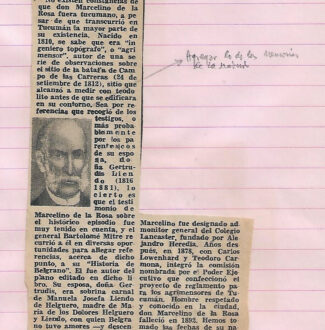 No existen constancias de
que don Marcelino de la
Rosa fuera tucumano, a pe
sar de que transcurrió en
Tucumán la mayor parte de
su existencia. Nacido en
1810, se sabe que era "in
geniero topógrafo", o "agri
mensor", autor de una se
rie de observaciones sobre
el sitio de la batalla de Cam
po de las Carreras (24 de
setiembre de 1812), sitio que
alcanzó a medir con teodo
lito antes de que se edificara
en su contorno. Sea por re
ferencias que recogió de los
testigos, o
más proba
blemente
por los pa
rentescos
de su espo
sa, do
ña Gertru
dis Lien
do (1816
1881), lo
cierto es
que el testi
monio de
Marcelino de la Rosa sobre
el histórico episodio fue
muy tenido en cuenta, y el
general Bartolomé Mitre re
currió a él en diversas opor
tunidades para allegar refe
rencias, acerca de dicho
punto, a su "Historia de
Belgrano". El fue autor del
plano editado en dicho li
bro. Su esposa, doña Ger
trudis, era sobrina carnal
de Manuela Josefa Liendo
de Helguero, madre de Ma
ría de los Dolores Helguero
y Liendo, con quien Belgra
no tuvo amores —y descen
Marcelino fue designado ad
ministrador general del Colegio
Lancaster, fundado por Ale
jandro Heredia. Años des
pués, en 1878, con Carlos
Lowenhard y Teodoro Car
mona, integró la comisión
nombrada por el Poder Eje
cutivo que confeccionó el
proyecto de reglamento pa
ra los agrimensores de Tu
cumán. Hombre respetado
y conocido en la ciudad,
don Marcelino de la Rosa
falleció en 1892. Hemos to
mado las fechas de su pa
Agregar
de la